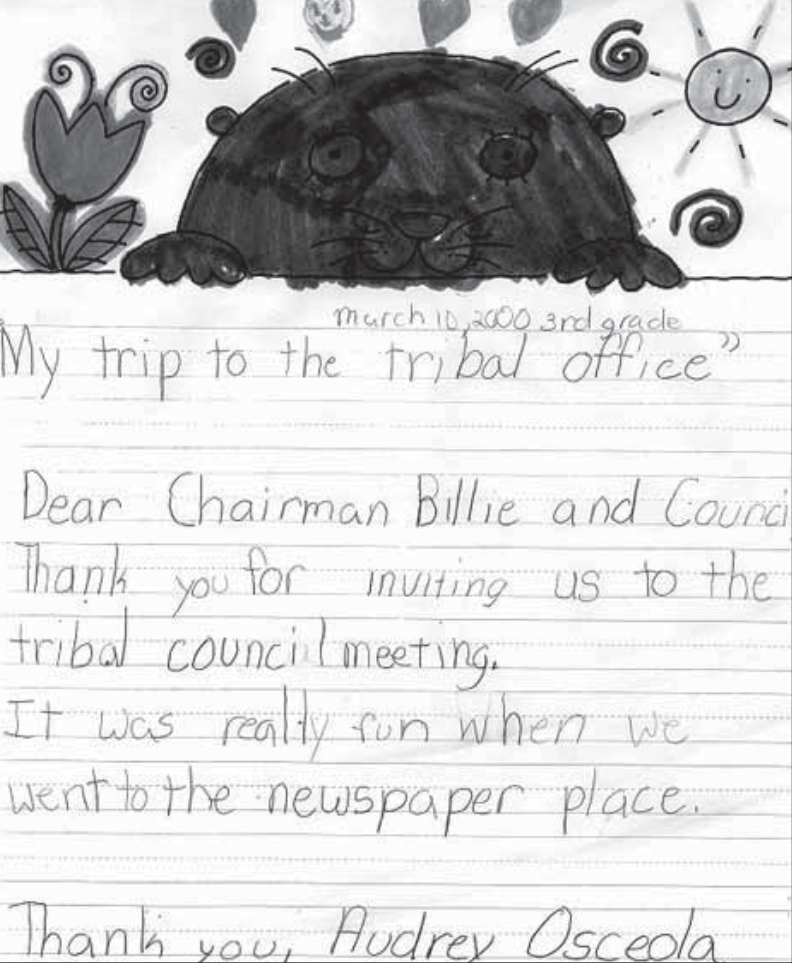 March 10, 2000 3rd grade
My trip to the tribal office"
Dear Chairman Billie and Counci
Thank you for inviting us to the
tribal council meeting.
It was really fun when we
went to the newspaper place.
Thank you, Audrey Osceola